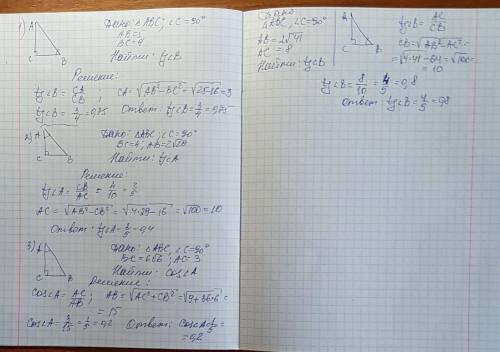 1) A
C B
Дано: △ABC, ∠C=90°
AB=5
BC=4
Найти: tg∠B
Решение:
tg∠B = CA/CB ; CA=√AB²-BC² = √25-16 = 3
tg∠B = 3/4 = 0,75 Ответ: tg∠B = 3/4 = 0,75
2) A
C B
Дано: △ABC, ∠C=90°
BC=4; AB=2√29
Найти: tg∠A
Решение:
tg∠A = CB/AC = 4/10 = 2/5
AC = √AB²-CB² = √4·29-16 = √100 = 10
Ответ: tg∠A = 2/5 = 0,4
3) A
C B
Дано: △ABC, ∠C=90°
BC=6√6; AC=3
Найти: cos∠A
Решение:
cos∠A = AC/AB ; AB=√AC²+CB² = √9+36·6 =
= 15
cos∠A = 3/15 = 1/5 = 0,2 Ответ: cos∠A = 1/5 =
= 0,2
Дано:
△ABC, ∠C=90°
AB=2√41
AC=8
Найти: tg∠B
A
C B
tg∠B = AC/CB
CB=√AB²-AC² =
= √4·41-64 = √100
= 10
tg∠B = 8/10 = 4/5 = 0,8
Ответ: tg∠B = 4/5 = 0,8